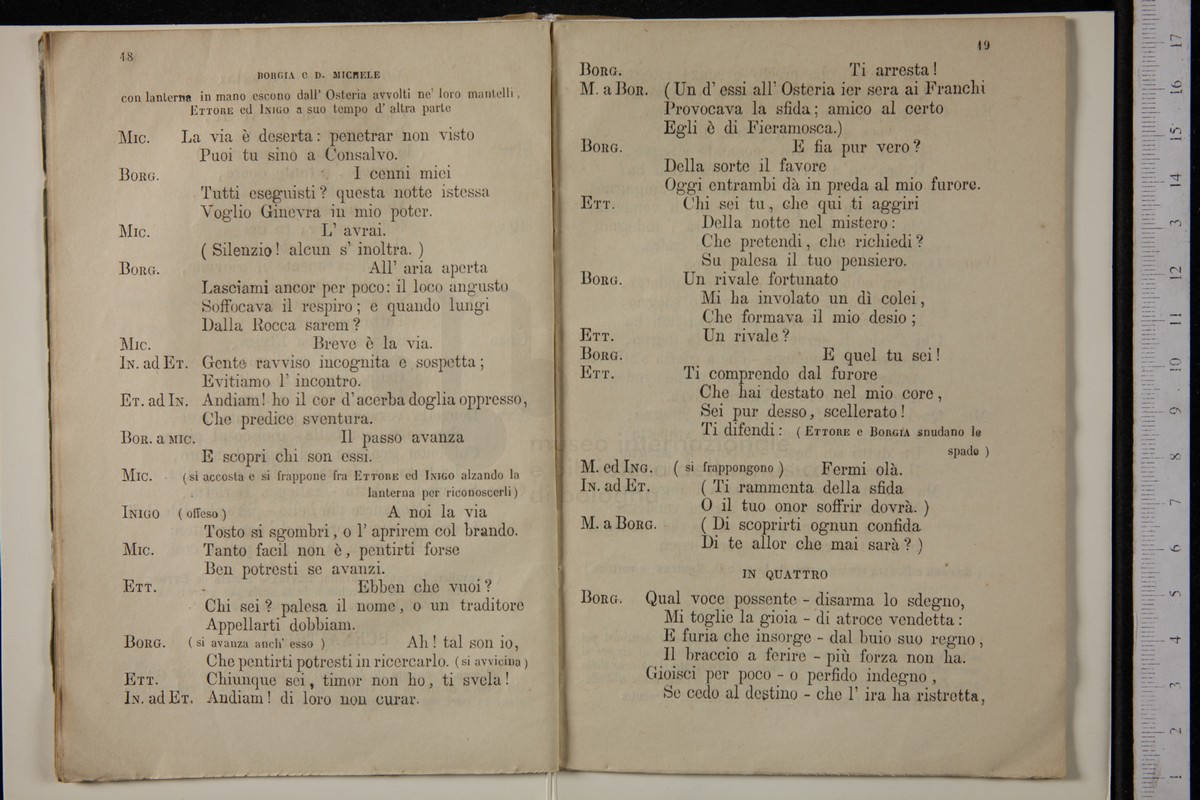 18
BORGIA e D. MICHELE
con lanterna in mano escono dall' Osteria avvolti ne' loro mantelli,
ETTORE ed INIGO a suo tempo d' altra parte
MIC. La via è deserta: penetrar non visto
Puoi tu sino a Consalvo.
BORG. I cenni miei
Tutti eseguisti? questa notte istessa
Voglio Ginevra in mio poter.
MIC. L' avrai.
( Silenzio! alcun s' inoltra. )
BORG. All' aria aperta
Lasciami ancor per poco: il loco angusto
Soffocava il respiro; e quando lungi
Dalla Rocca sarem?
MIC. Breve è la via.
IN. ad ET. Gente ravviso incognita e sospetta;
Evitiamo l' incontro.
ET. ad IN. Andiam! ho il cor d'acerba doglia oppresso,
Che predice sventura.
BOR. a MIC. Il passo avanza
E scopri chi son essi.
MIC. (si accosta e si frappone fra ETTORE ed INIGO alzando la
lanterna per riconoscerli)
INIGO (offeso) A noi la via
Tosto si sgombri, o l' aprirem col brando.
MIC. Tanto facil non è, pentirti forse
Ben potresti se avanzi.
ETT. Ebben che vuoi?
Chi sei? palesa il nome, o un traditore
Appellarti dobbiam.
BORG. (si avanza anch' esso ) Ah! tal son io,
Che pentirti potresti in ricercarlo. (si avvicina)
ETT. Chiunque sei, timor non ho, ti svela!
IN. ad ET. Andiam! di loro non curar.
19
BORG. Ti arresta!
M. a BOR. (Un d' essi all' Osteria ier sera ai Franchi
Provocava la sfida; amico al certo
Egli è di Fieramosca.)
BORG. E fia pur vero?
Della sorte il favore
Oggi entrambi dà in preda al mio furore.
ETT. Chi sei tu, che qui ti aggiri
Della notte nel mistero:
Che pretendi, che richiedi?
Su palesa il tuo pensiero.
BORG. Un rivale fortunato
Mi ha involato un dì colei,
Che formava il mio desio;
ETT. Un rivale?
BORG. E quel tu sei!
ETT. Ti comprendo dal furore
Che hai destato nel mio core,
Sei pur desso, scellerato!
Ti difendi: (ETTORE e BORGIA snudano le
spade )
M. ed ING. ( si frappongono ) Fermi olà.
IN. ad ET. ( Ti rammenta della sfida
O il tuo onor soffrir dovrà. )
M. a BORG. ( Di scoprirti ognun confida
Di te allor che mai sarà? )
IN QUATTRO
BORG. Qual voce possente - disarma lo sdegno,
Mi toglie la gioia - di atroce vendetta:
E furia che insorge - dal buio suo regno,
Il braccio a ferire - più forza non ha.
Gioisci per poco - o perfido indegno,
Se cedo al destino - che l' ira ha ristretta,